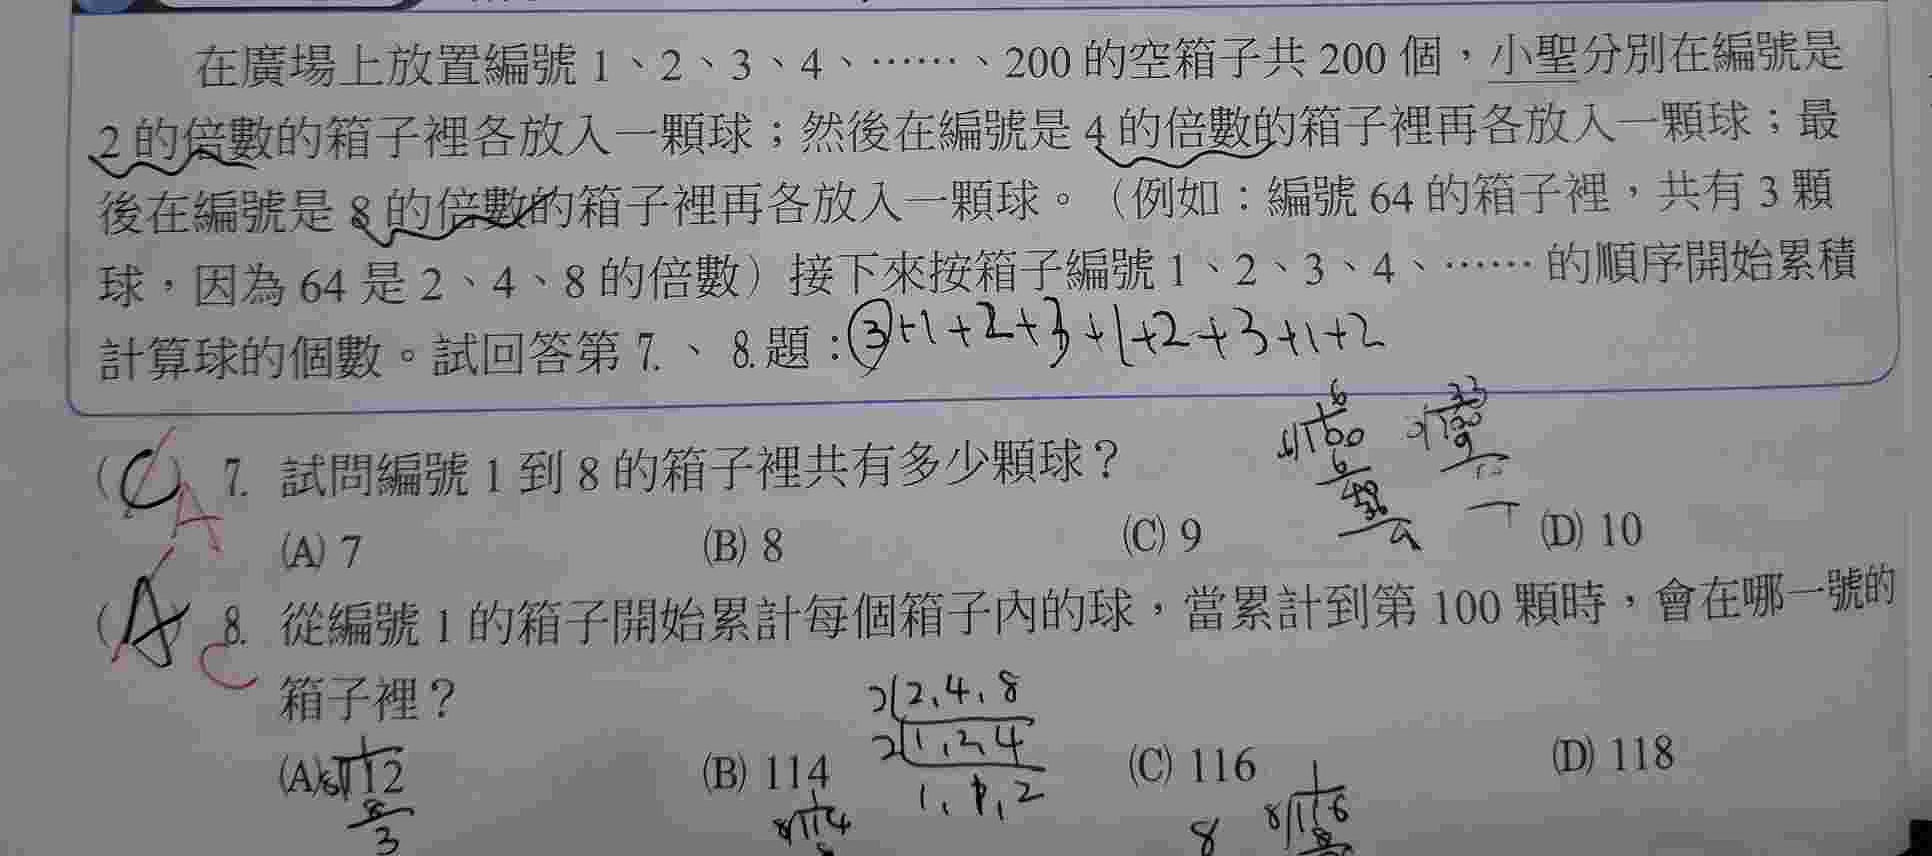 在廣場上放置編號 1、2、3、4、……、200 的空箱子共 200 個，小聖分別在編號是
2 的倍數的箱子裡各放入一顆球；然後在編號是 4 的倍數的箱子裡再各放入一顆球；最
後在編號是 8 的倍數的箱子裡再各放入一顆球。（例如：編號 64 的箱子裡，共有 3 顆
球，因為 64 是 2、4、8 的倍數）接下來按箱子編號 1、2、3、4、…… 的順序開始累積
計算球的個數。試回答第 7.、8. 題：3+1+2+3+1+2+3+1+2
(C) A 7. 試問編號 1 到 8 的箱子裡共有多少顆球？
(A) 7 (B) 8 (C) 9 (D) 10
(A) C 8. 從編號 1 的箱子開始累計每個箱子內的球，當累計到第 100 顆時，會在哪一號的
箱子裡？
2 2,4,8
2 1,2,4
1,1,2
(A) 112 (B) 114 (C) 116 (D) 118
8
3
8 114
8
8 116